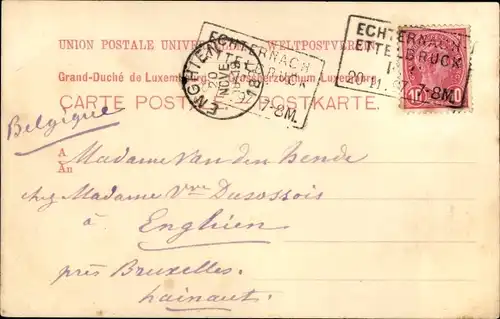 UNION POSTALE WELTPOSTVEREIN
Grand-Duché de Luxembourg. Grossherzogthum Luxemburg.
CARTE POSTALE POSTKARTE
ECHTERNACH
ETTELBRUCK
20 7-8M.
ECHTERNACH
ETTELBRUCK
20 11 7-8M.
ENGHIEN
20
NOVE
10 10
Belgique
A
An
Madame Van den
chez Madame Vve Dusossois
à
Enghien
près Bruxelles.
hainaut.